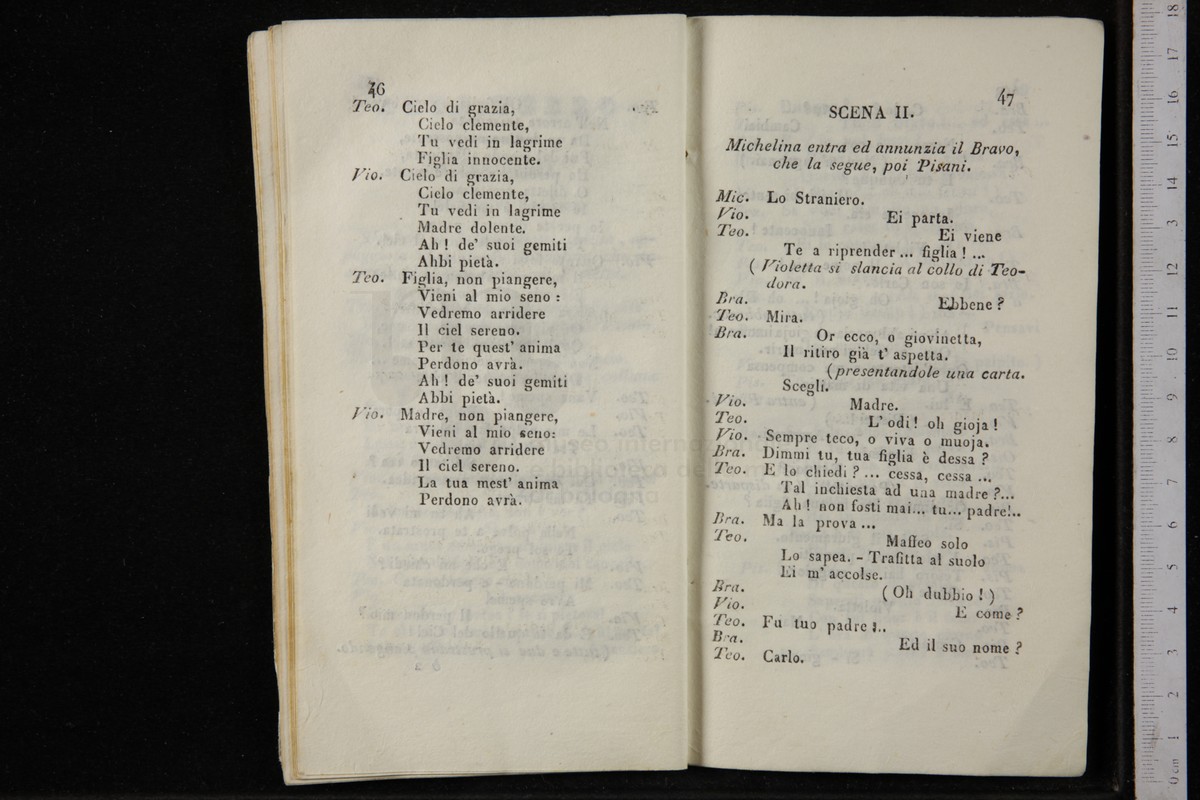 46
Teo. Cielo di grazia,
Cielo clemente,
Tu vedi in lagrime
Figlia innocente.
Vio. Cielo di grazia,
Cielo clemente,
Tu vedi in lagrime
Madre dolente.
Ah! de' suoi gemiti
Abbi pietà.
Teo. Figlia, non piangere,
Vieni al mio seno:
Vedremo arridere
Il ciel sereno.
Per te quest' anima
Perdono avrà.
Ah! de' suoi gemiti
Abbi pietà.
Vio. Madre, non piangere,
Vieni al mio seno:
Vedremo arridere
Il ciel sereno.
La tua mest' anima
Perdono avrà.
47
SCENA II.
Michelina entra ed annunzia il Bravo,
che la segue, poi Pisani.
Mic. Lo Straniero.
Vio. Ei parta.
Teo. Ei viene
Te a riprender... figlia! ...
(Violetta si slancia al collo di Teo-
dora.
Bra. Ebbene?
Teo. Mira.
Bra. Or ecco, o giovinetta,
Il ritiro già t' aspetta.
(presentandole una carta.
Scegli.
Vio. Madre.
Teo. L' odi! oh gioja!
Vio. Sempre teco, o viva o muoja.
Bra. Dimmi tu, tua figlia è dessa?
Teo. E lo chiedi? ... cessa, cessa ...
Tal inchiesta ad una madre?...
Ah! non fosti mai... tu... padre!..
Bra. Ma la prova ...
Teo. Maffeo solo
Lo sapea. - Trafitta al suolo
Ei m' accolse.
Bra. (Oh dubbio!)
Vio. E come?
Teo. Fu tuo padre!..
Bra. Ed il suo nome?
Teo. Carlo.